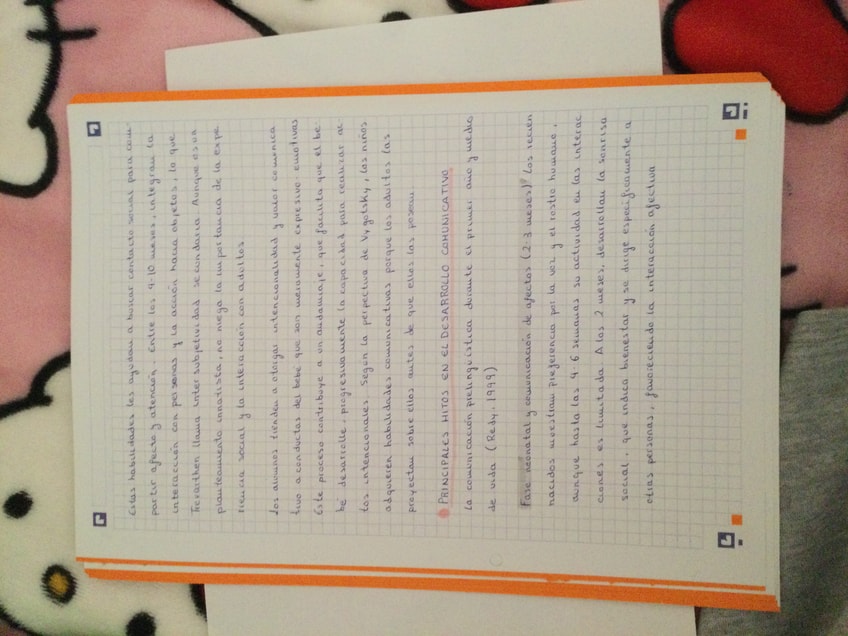 Estas habilidades les ayudan a buscar contacto social para com
partir afecto y atención. Entre los 9-10 meses, integran la
interacción con personas y la acción hacia objetos, lo que
Trevarthen llama intersubjetividad secundaria. Aunque es un
planteamiento innatista, no niega la importancia de la expe
riencia social y la interacción con adultos.
Los adultos tienden a otorgar intencionalidad y valor comunica
tivo a conductas del bebé que son meramente expresivo-emotivas
Este proceso contribuye a un andamiaje, que facilita que el be
bé desarrolle, progresivamente la capacidad para realizar ac
tos intencionales. Según la perpectiva de Vygotsky, los niños
adquieren habilidades comunicativas porque los adultos las
proyectan sobre ellos antes de que ellos las posean.
PRINCIPALES HITOS EN EL DESARROLLO COMUNICATIVO
La comunicación prelingüística durante el primer año y medio
de vida (Redy, 1999)
Fase neonatal y comunicación de afectos (2-3 meses) Los recien
nacidos muestran preferencia por la voz y el rostro humano,
aunque hasta las 4-6 semanas su actividad en las interac
ciones es limitada. A los 2 meses, desarrollan la sonrisa
social, que indica bienestar y se dirige específicamente a
otras personas, favoreciendo la interacción afectiva